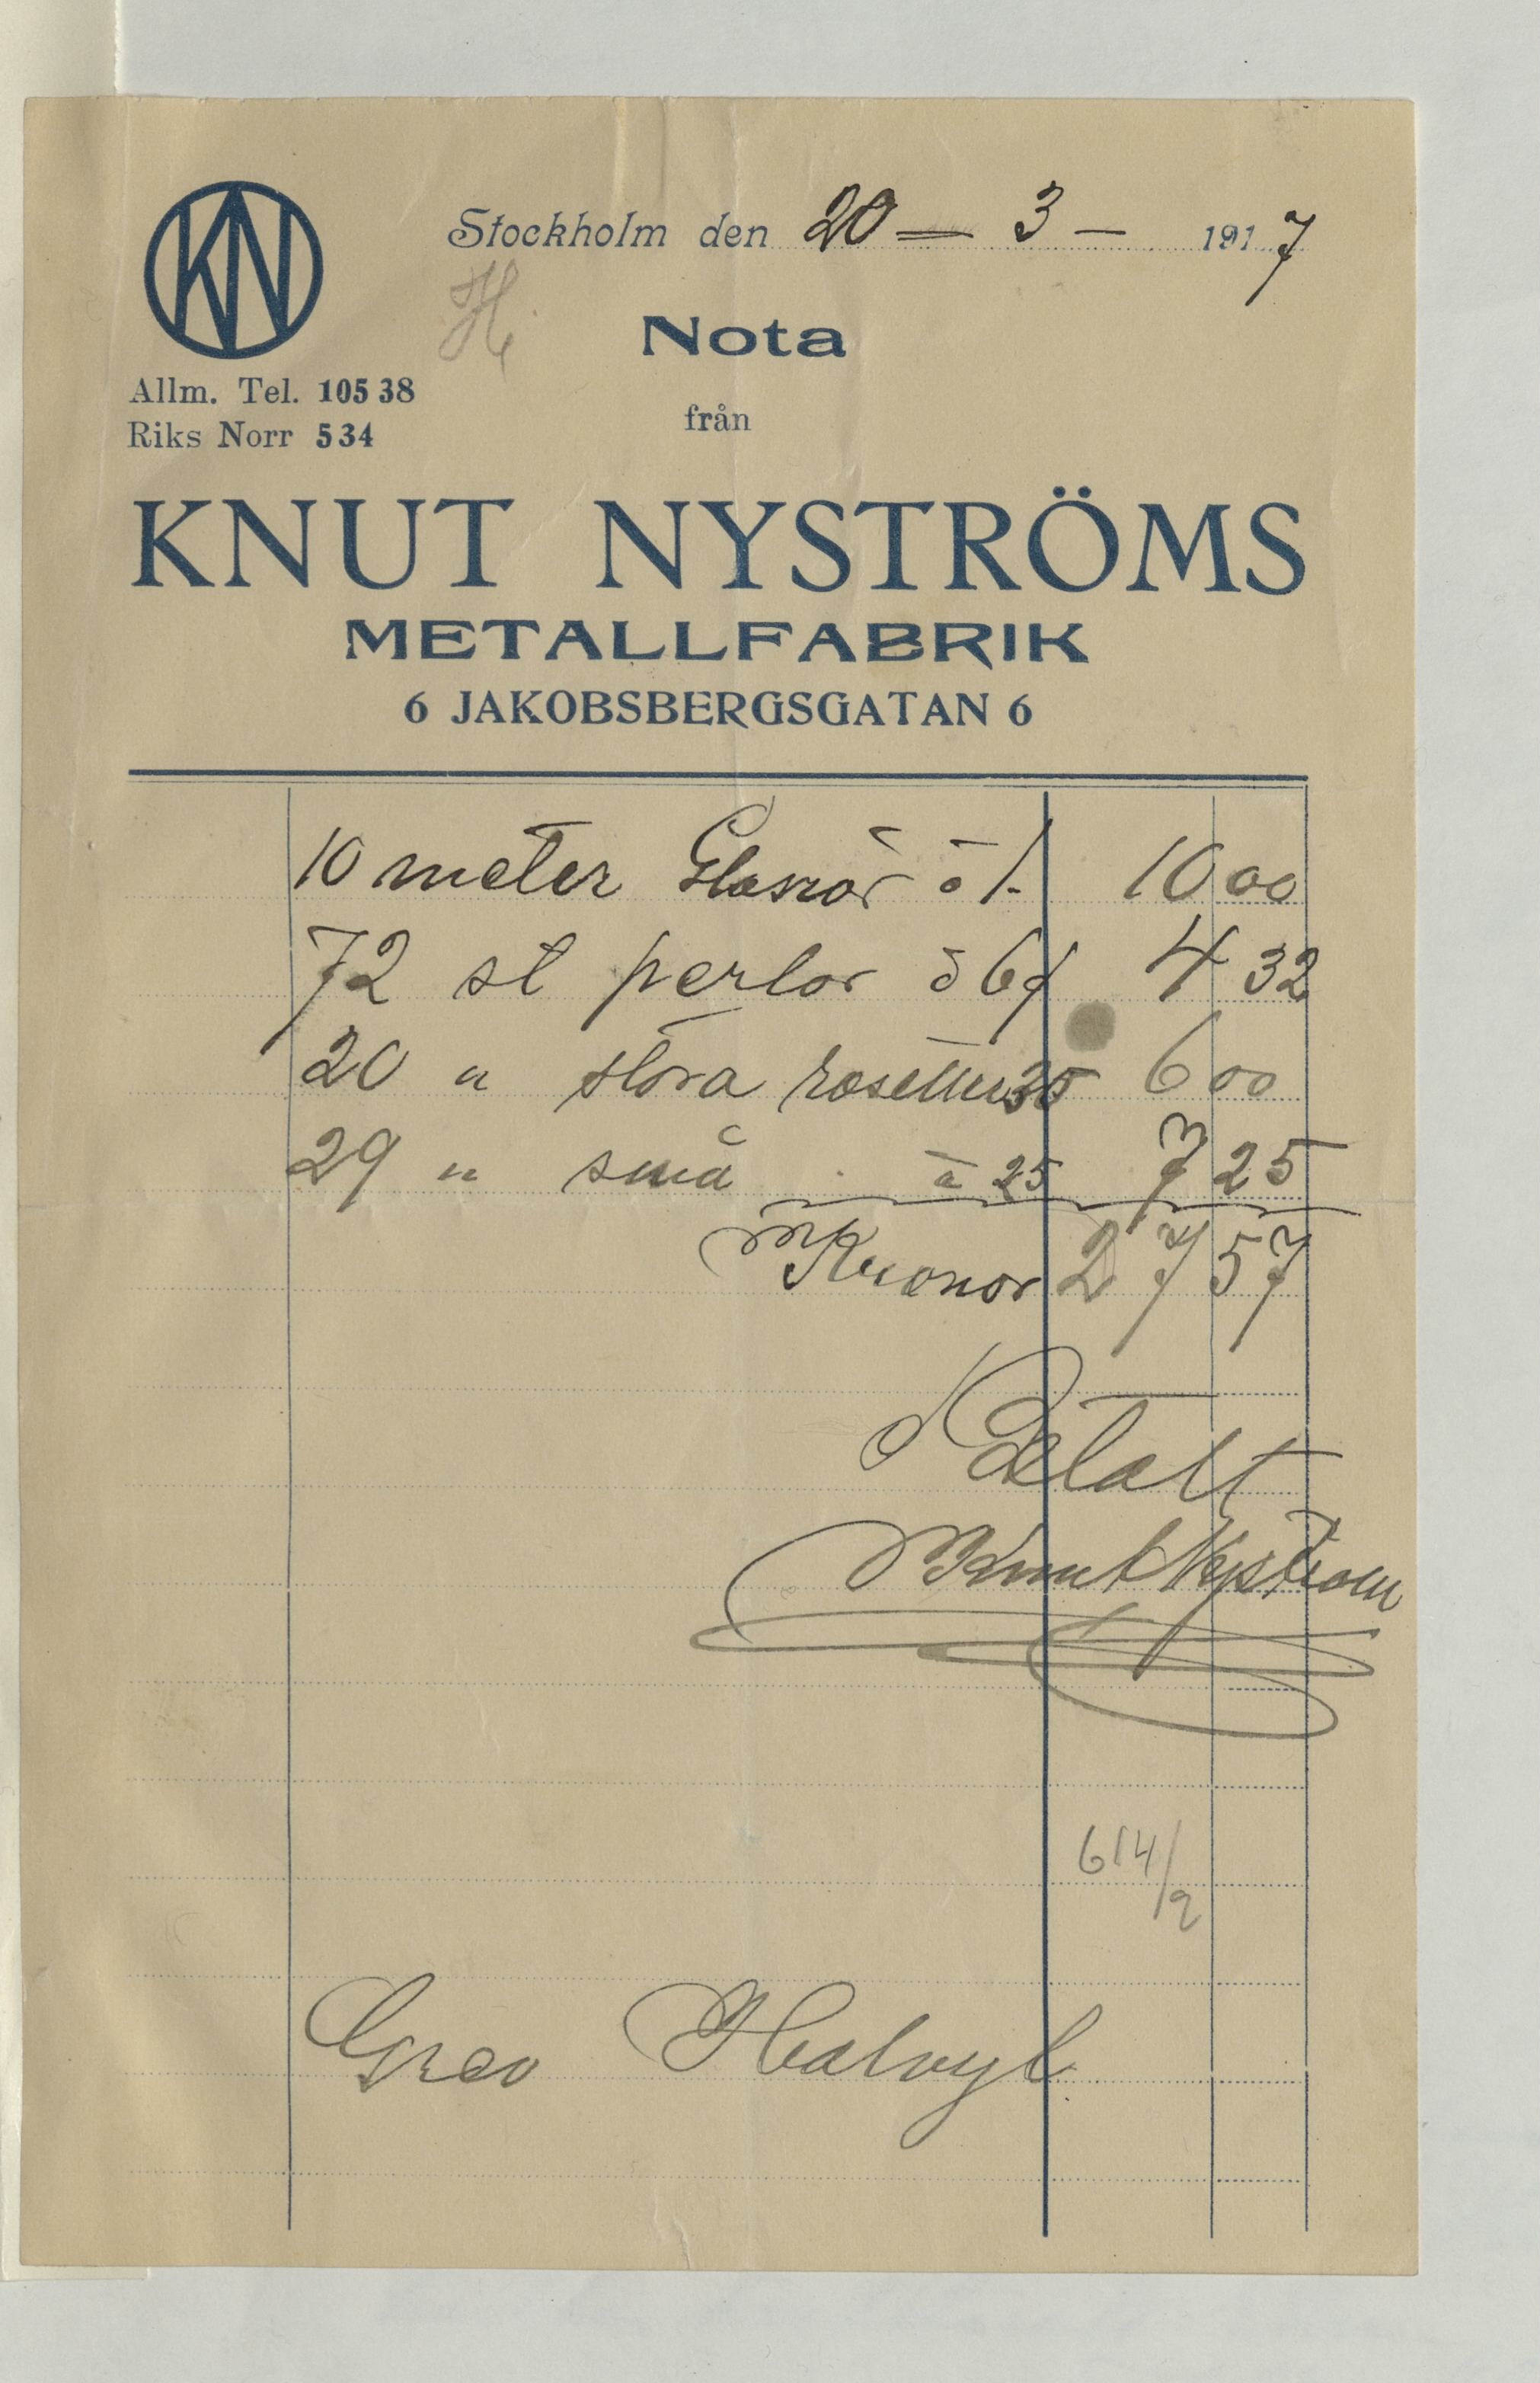 KN
Stockholm den 20 — 3 — 1917
H.
Nota
Allm. Tel. 105 38
från
Riks Norr 534
KNUT NYSTRÖMS
METALLFABRIK
6 JAKOBSBERGSGATAN 6
10 meter Glasrör à 1.- 10 00
72 st perlor à 6 4 32
20 " stora rosetter 30 6 00
29 " små à 25 7 25
Kronor 27 57
Betalt
Knut Nyström
614/2
Grev Halwyl